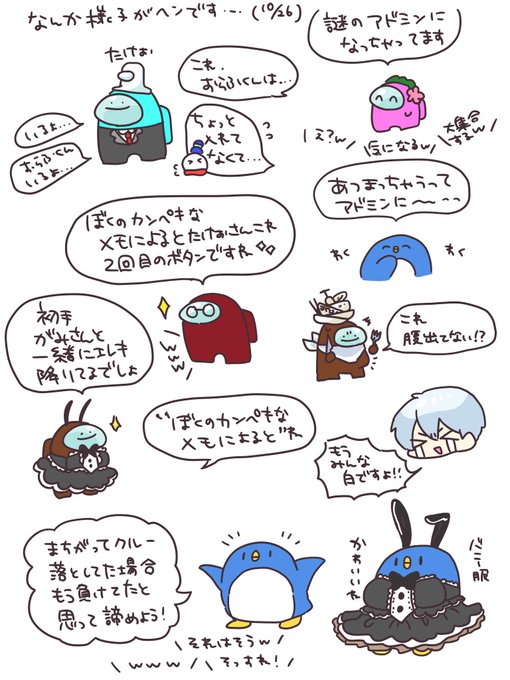 なんか様子がヘンです… (10/26)
謎のアドミンに
なっちゃってます
たけぉぃ
これ、
おらふくんは…
いるよ…
おらふくん
いるよ…
ちょっと
メれて
なくて…
え?w
気になるw
大集合
するw
あつまっちゃうって
アドミンに〜--
わく
わく
ぼくのカンペキな
メモによるとたけぉぃさんこれ
2回目のボタンですね
www
初手
がみさんと
一緒にエレキ
降りてるでしょ
これ
腹出てない!?
"ぼくのカンペキな
メモによると"ね
もう
みんな
白ですよ!!
まちがってクルー
落としてた場合
もう負けてたと
思って諦めよう!
それはそうw
www
そっすね!
かわいいね
バニー服